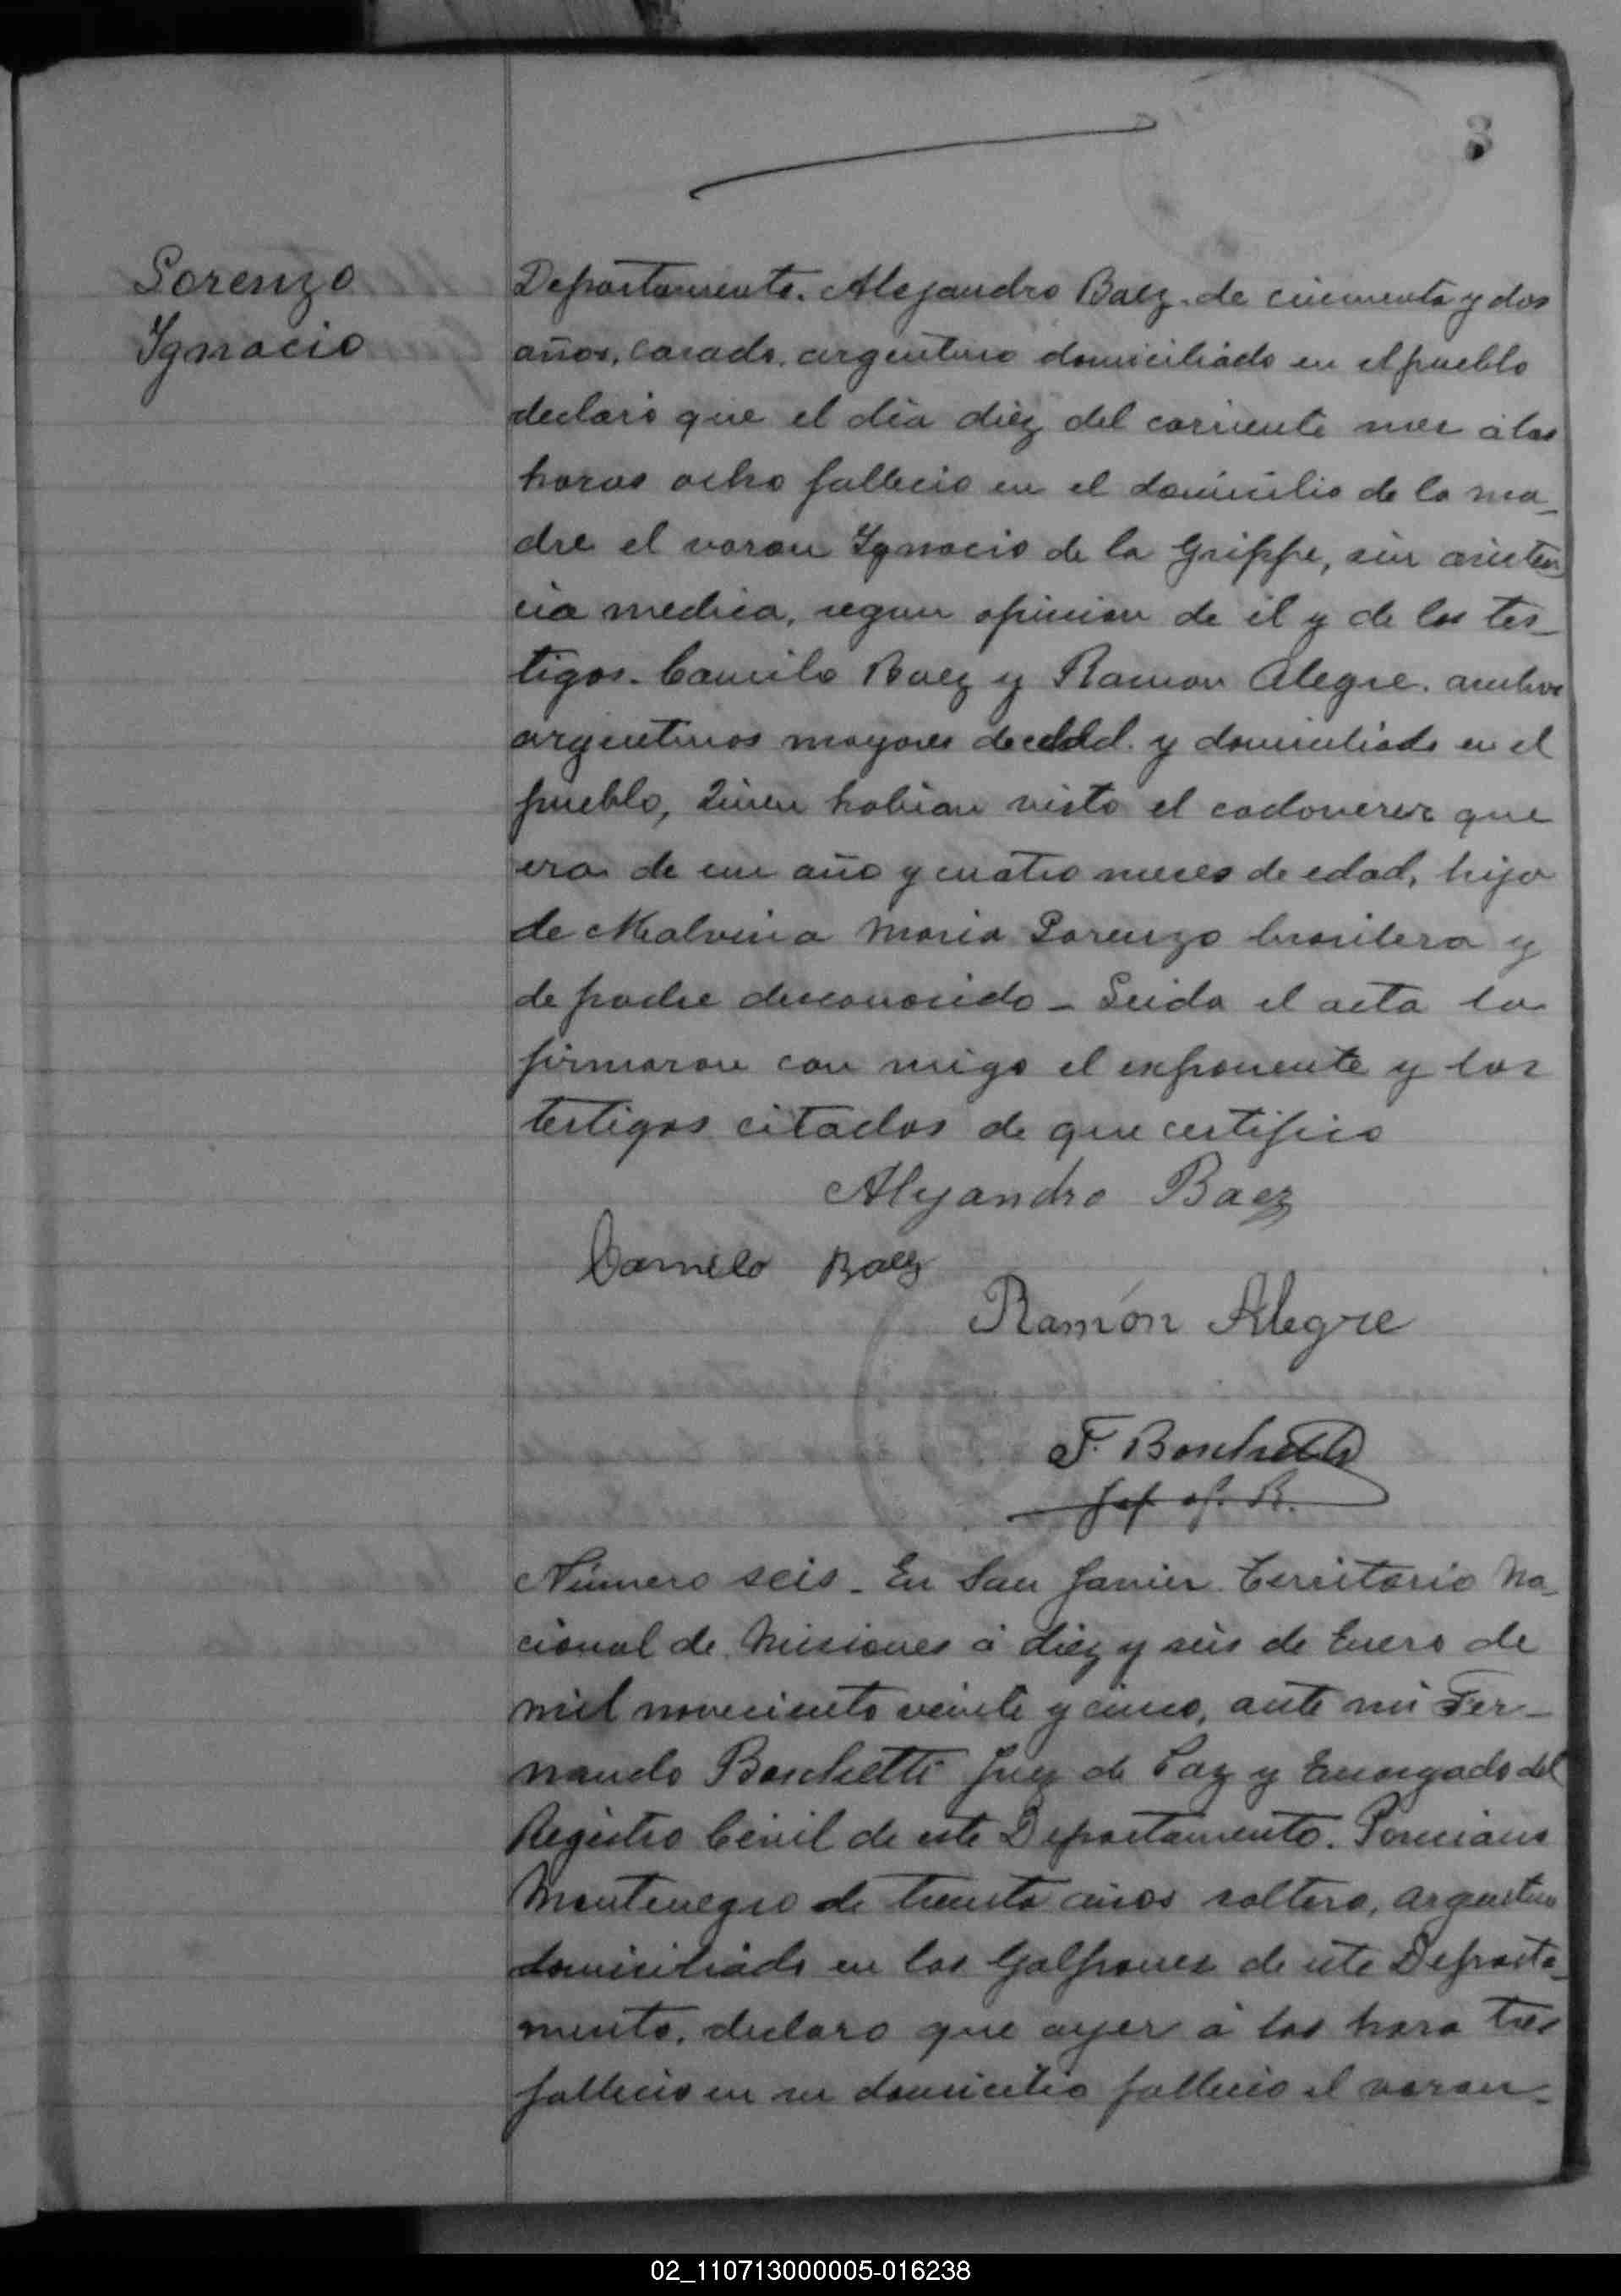 3
Lorenzo
Ignacio
Departamento. Alejandro Baez. de cincuenta y dos
años, casado. argentino domiciliado en el pueblo
declaró que el día diez del corriente mes á las
horas ocho fallecio en el domicilio de la ma_
dre el varon Ignacio de la Grippe, sin asisten
cia medica, segun opinion de él y de los tes_
tigos. Camilo Baez y Ramon Alegre. ambos
argentinos mayores de edad. y domiciliado en el
pueblo, quien habian visto el cadaver que
era de un año y cuatro meses de edad, hijo
de Malvina Maria Lorenzo brasilera y
de padre desconosido _ Leida el acta la
firmaron con migo el exponente y los
testigos citados de que certifico
Alejandro Baez
Camilo Baez
Ramón Alegre
F. Boschetti
Jef. of. R.
Número seis _ En San Javier. Territorio Na_
cional de Misiones á diez y seis de Enero de
mil noveciento veinte y cinco, ante mi Fer_
nando Boschetti Juez de Paz y Encargado del
Registro Civil de este Departamento. Ponciano
Montenegro de treinta años soltero, argentino
domiciliado en los Galpones de este Departa_
mento. declaro que ayer á las hora tres
fallecio en su domicilio fallecio el varon_
02_110713000005-016238